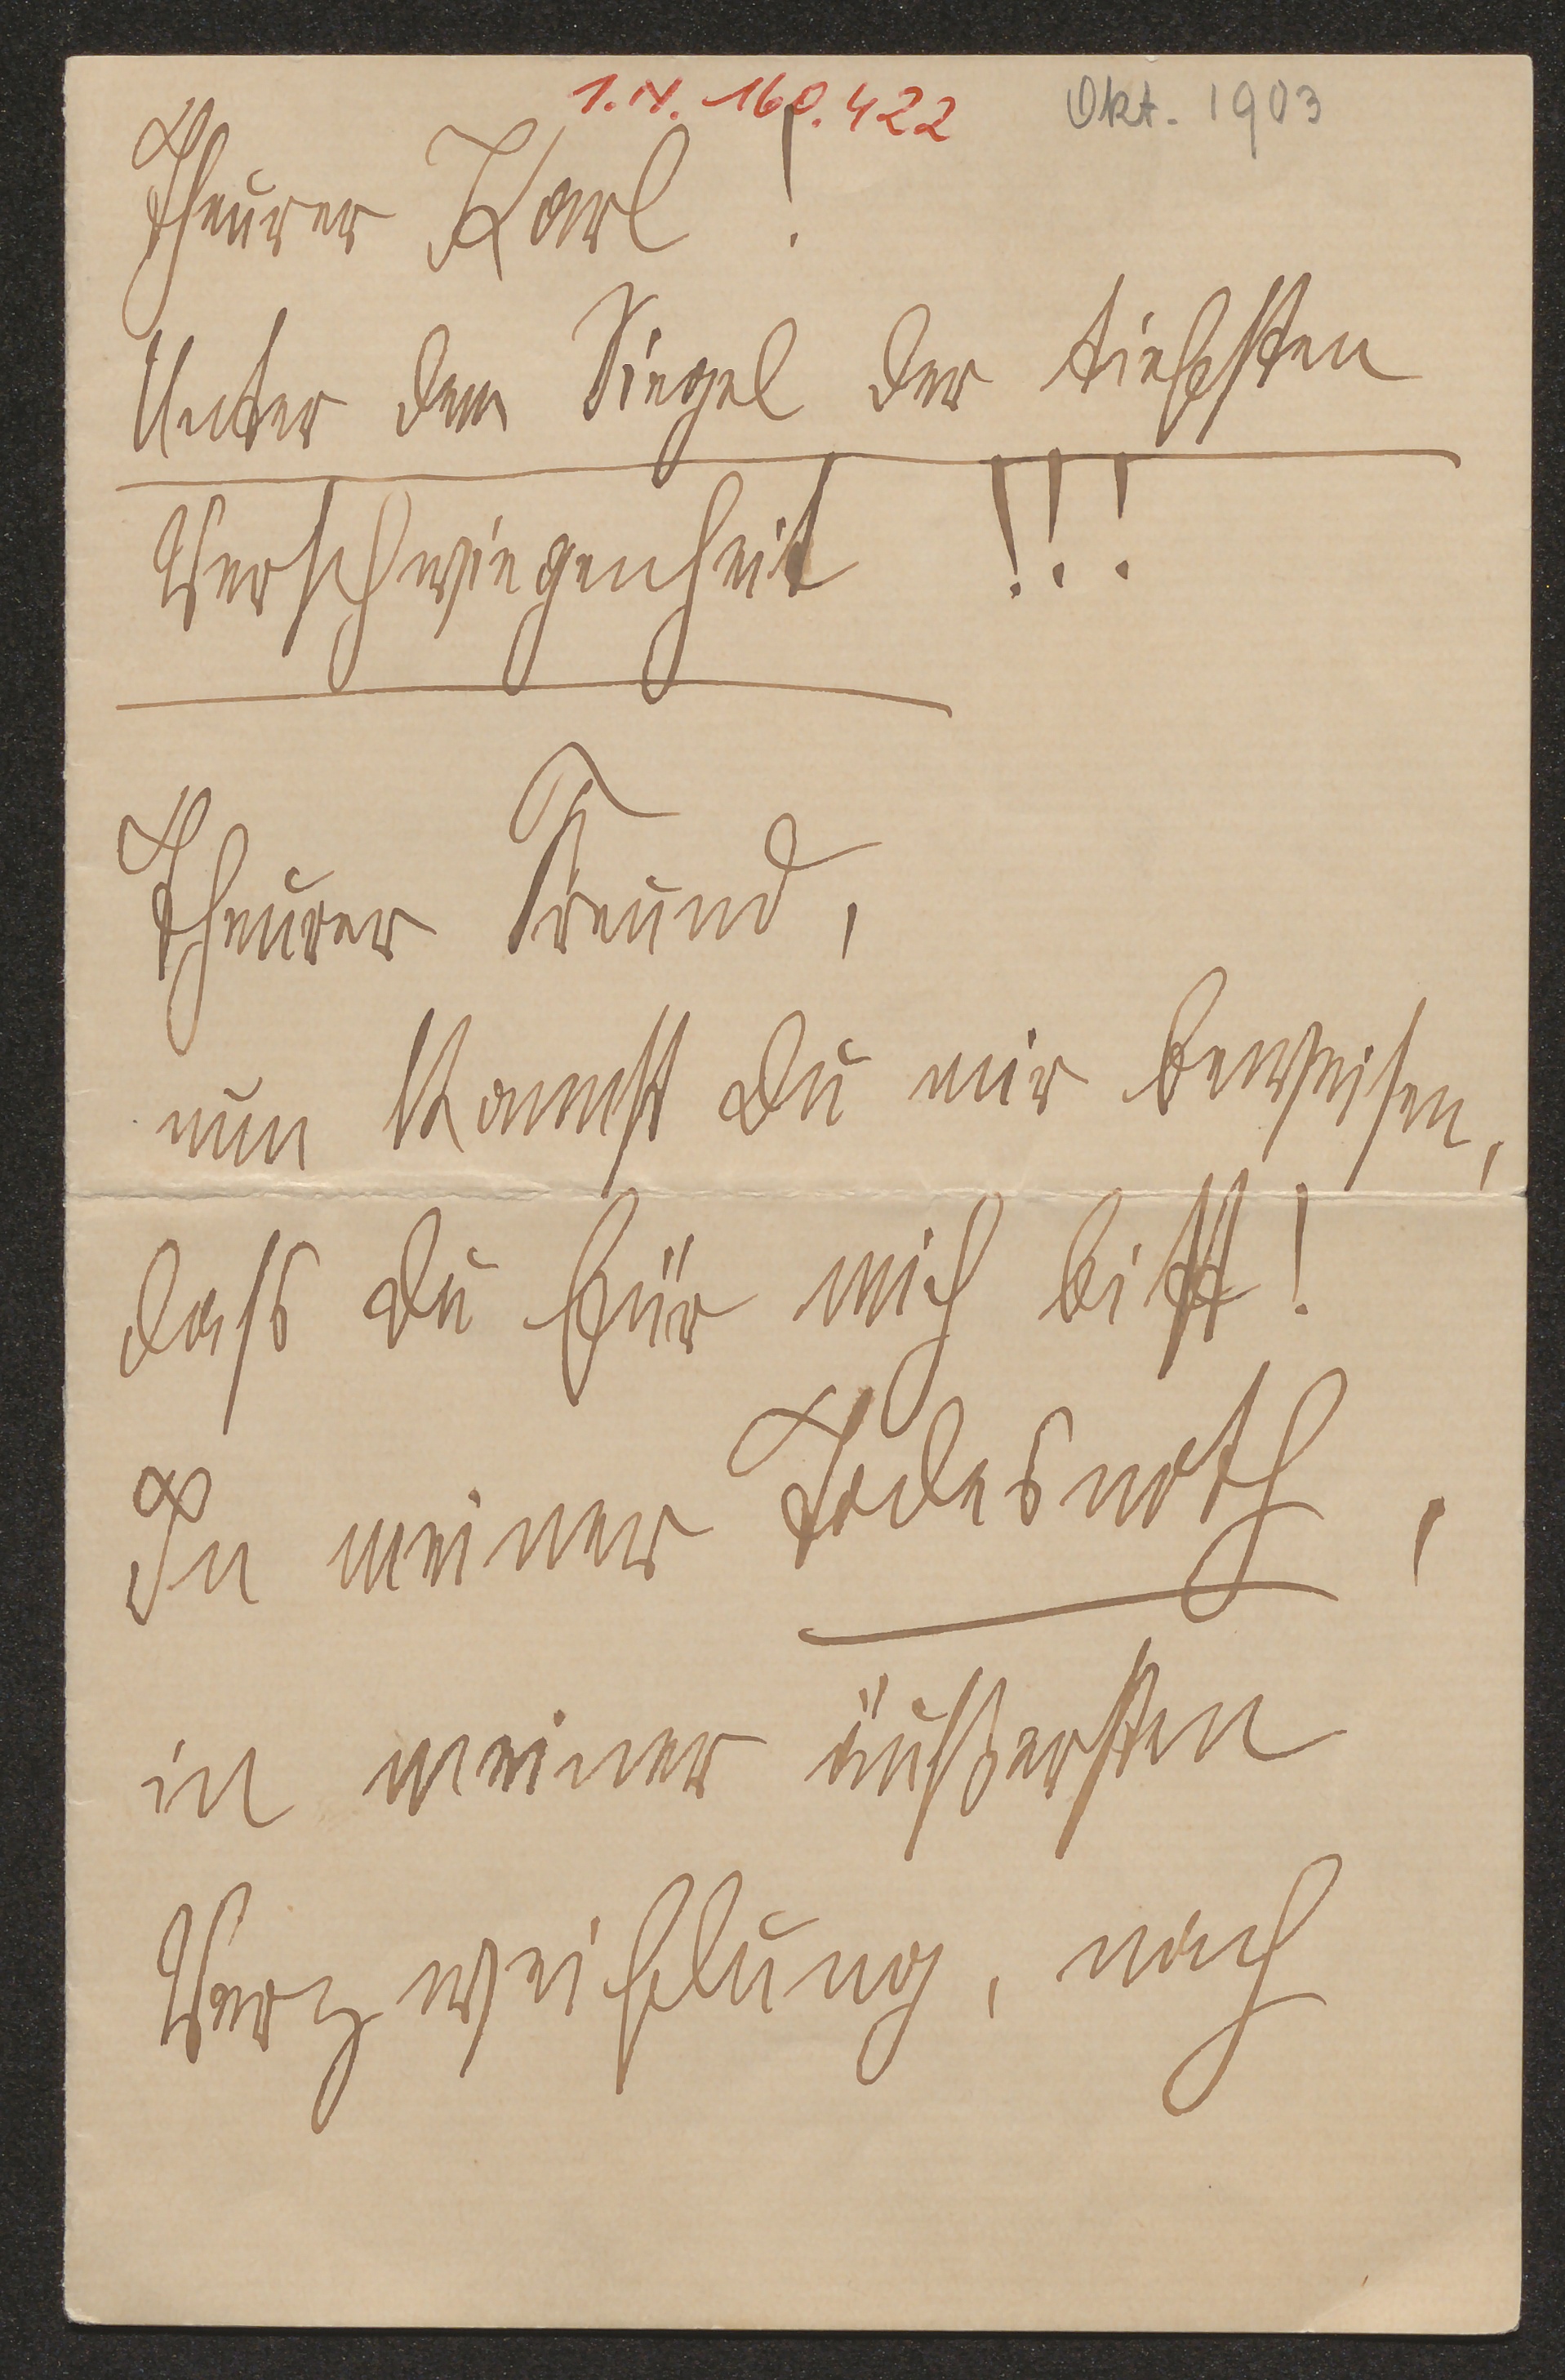 I.N. 160.422 Okt. 1903
Theurer Karl!
Unter dem Siegel der tiefsten
Verschwiegenheit !!!
Theurer Freund,
nun kannst du mir beweisen,
dass du für mich bist!
In meiner Todesnoth,
in meiner äußersten
Verzweiflung, nach